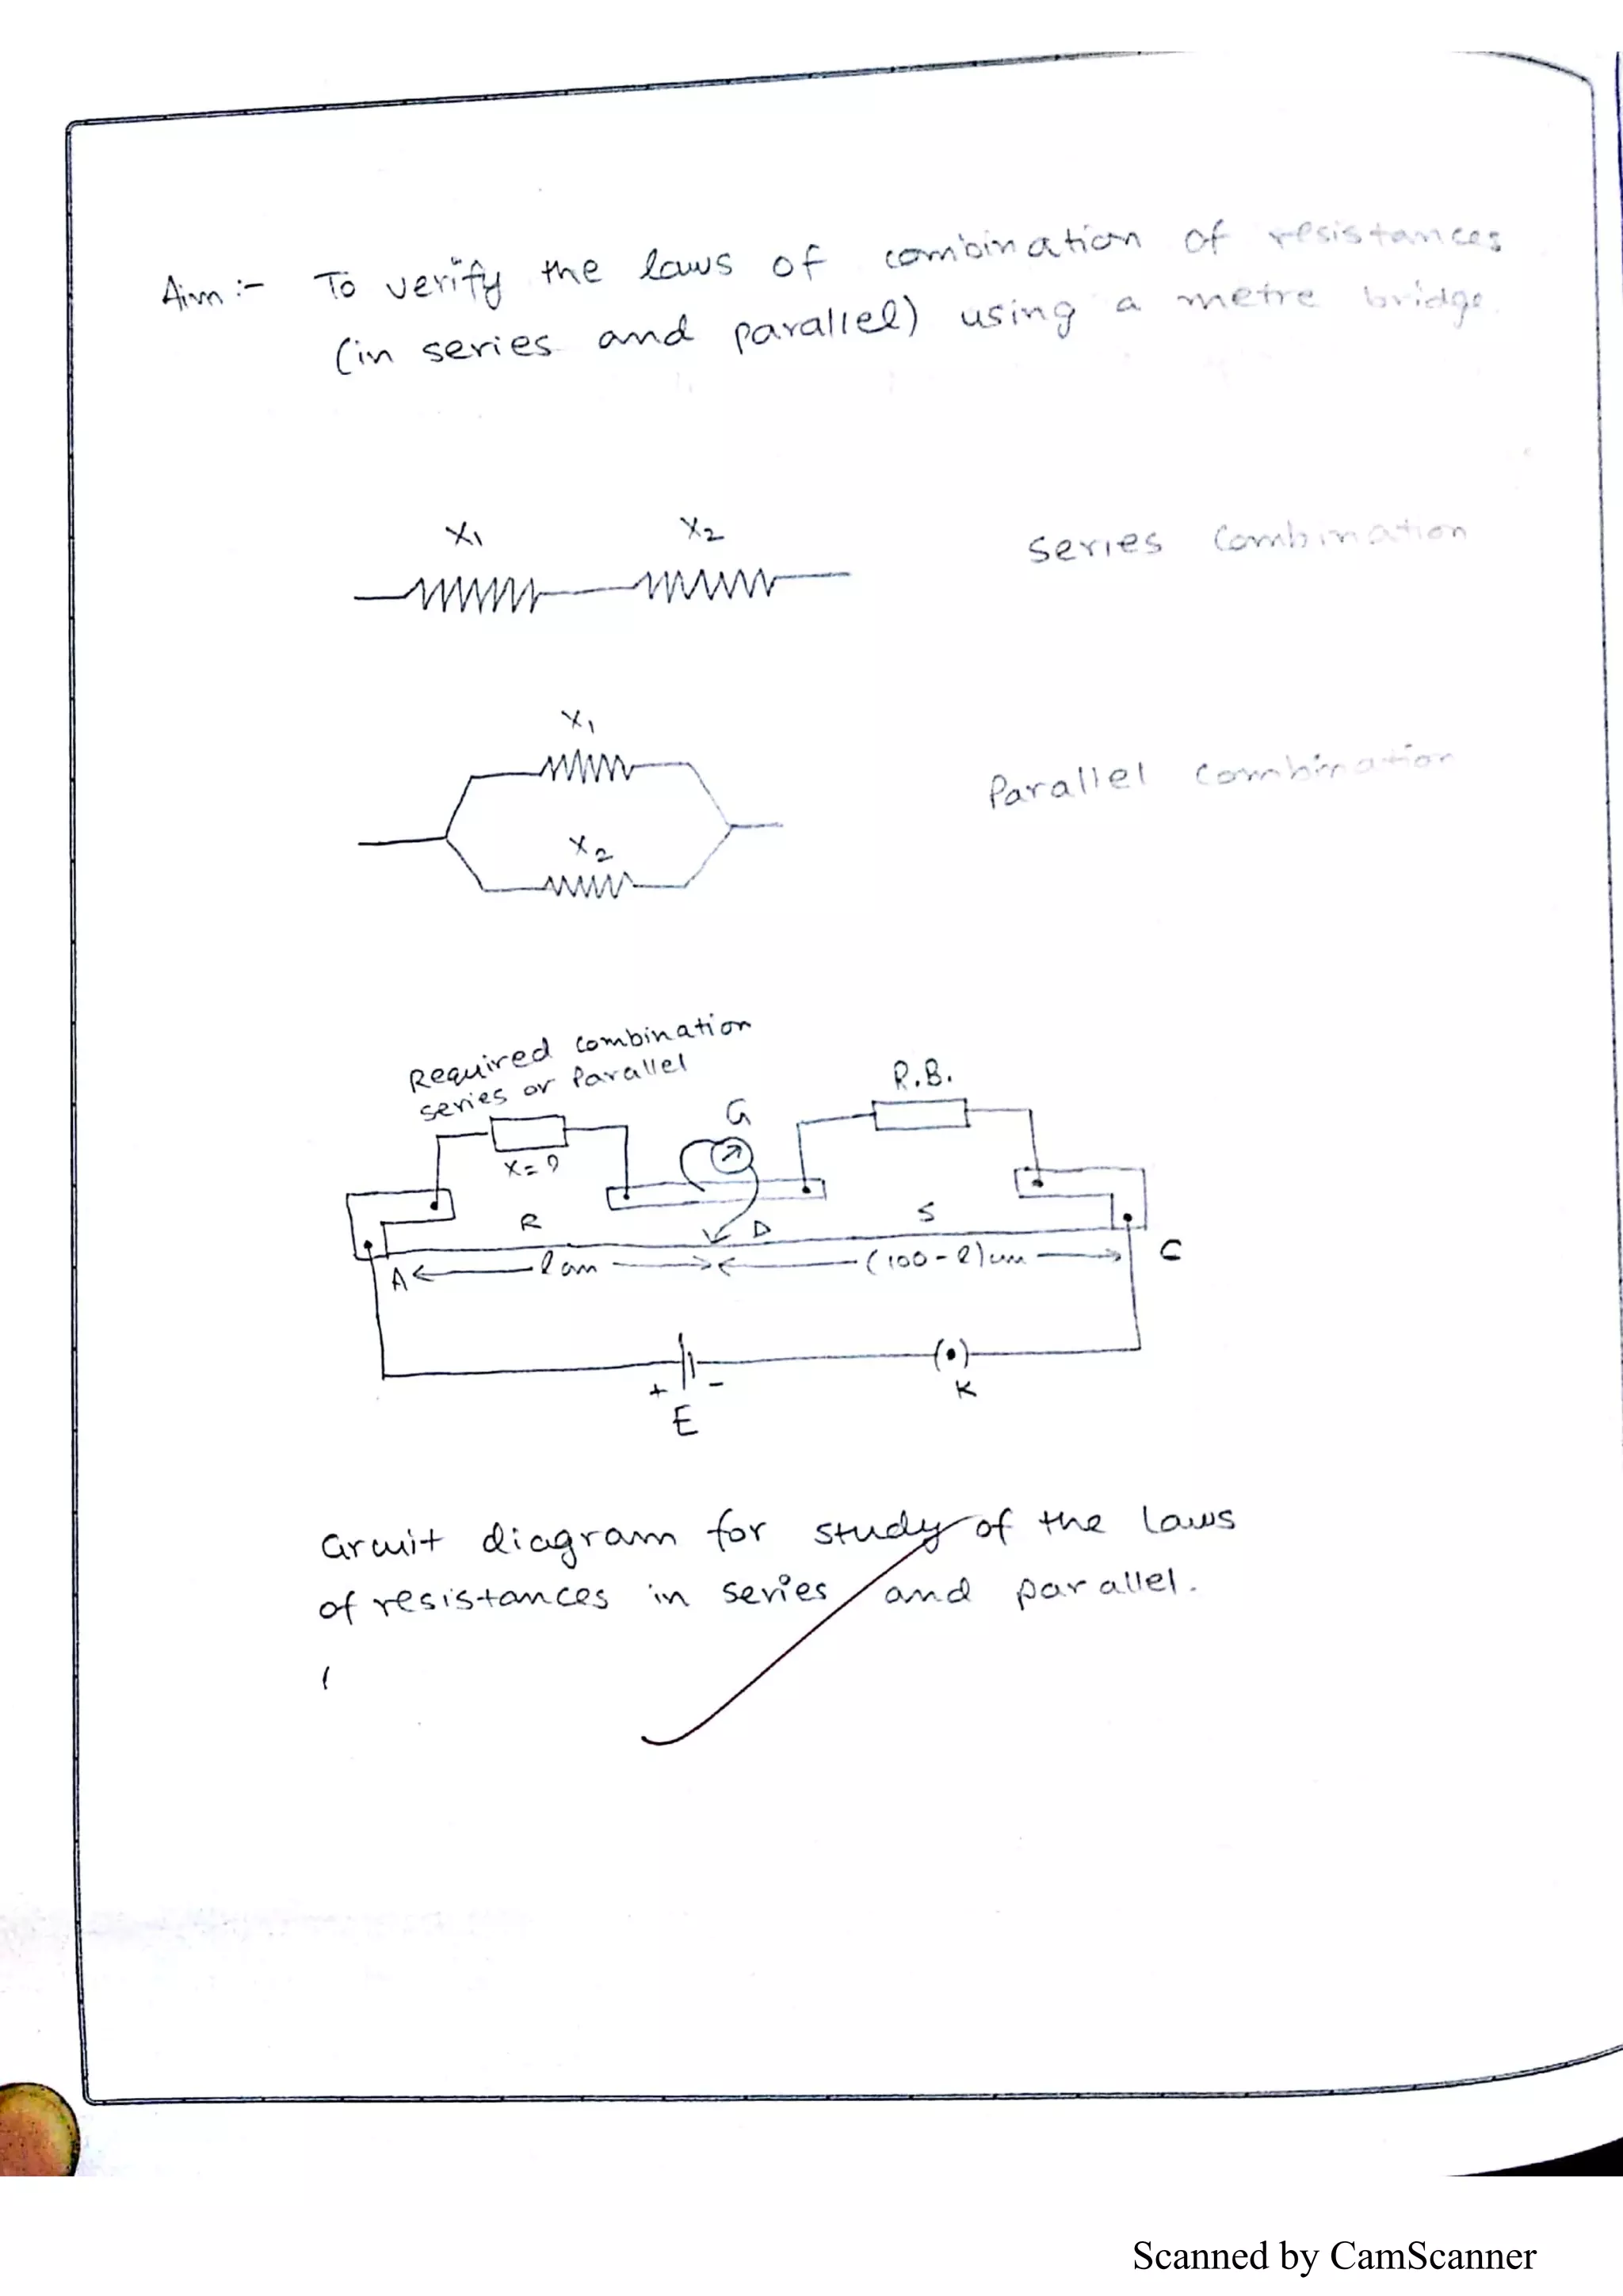 Aim :- To verify the laws of combination of resistances
(in series and parallel) using a metre bridge.
X1 X2
Series Combination
X1
Parallel Combination
X2
Required combination
series or Parallel
R.B.
G
X = ?
R
S
D
A
l cm
(100 - l) cm
C
+ -
K
E
Circuit diagram for study of the laws
of resistances in series and parallel.
Scanned by CamScanner